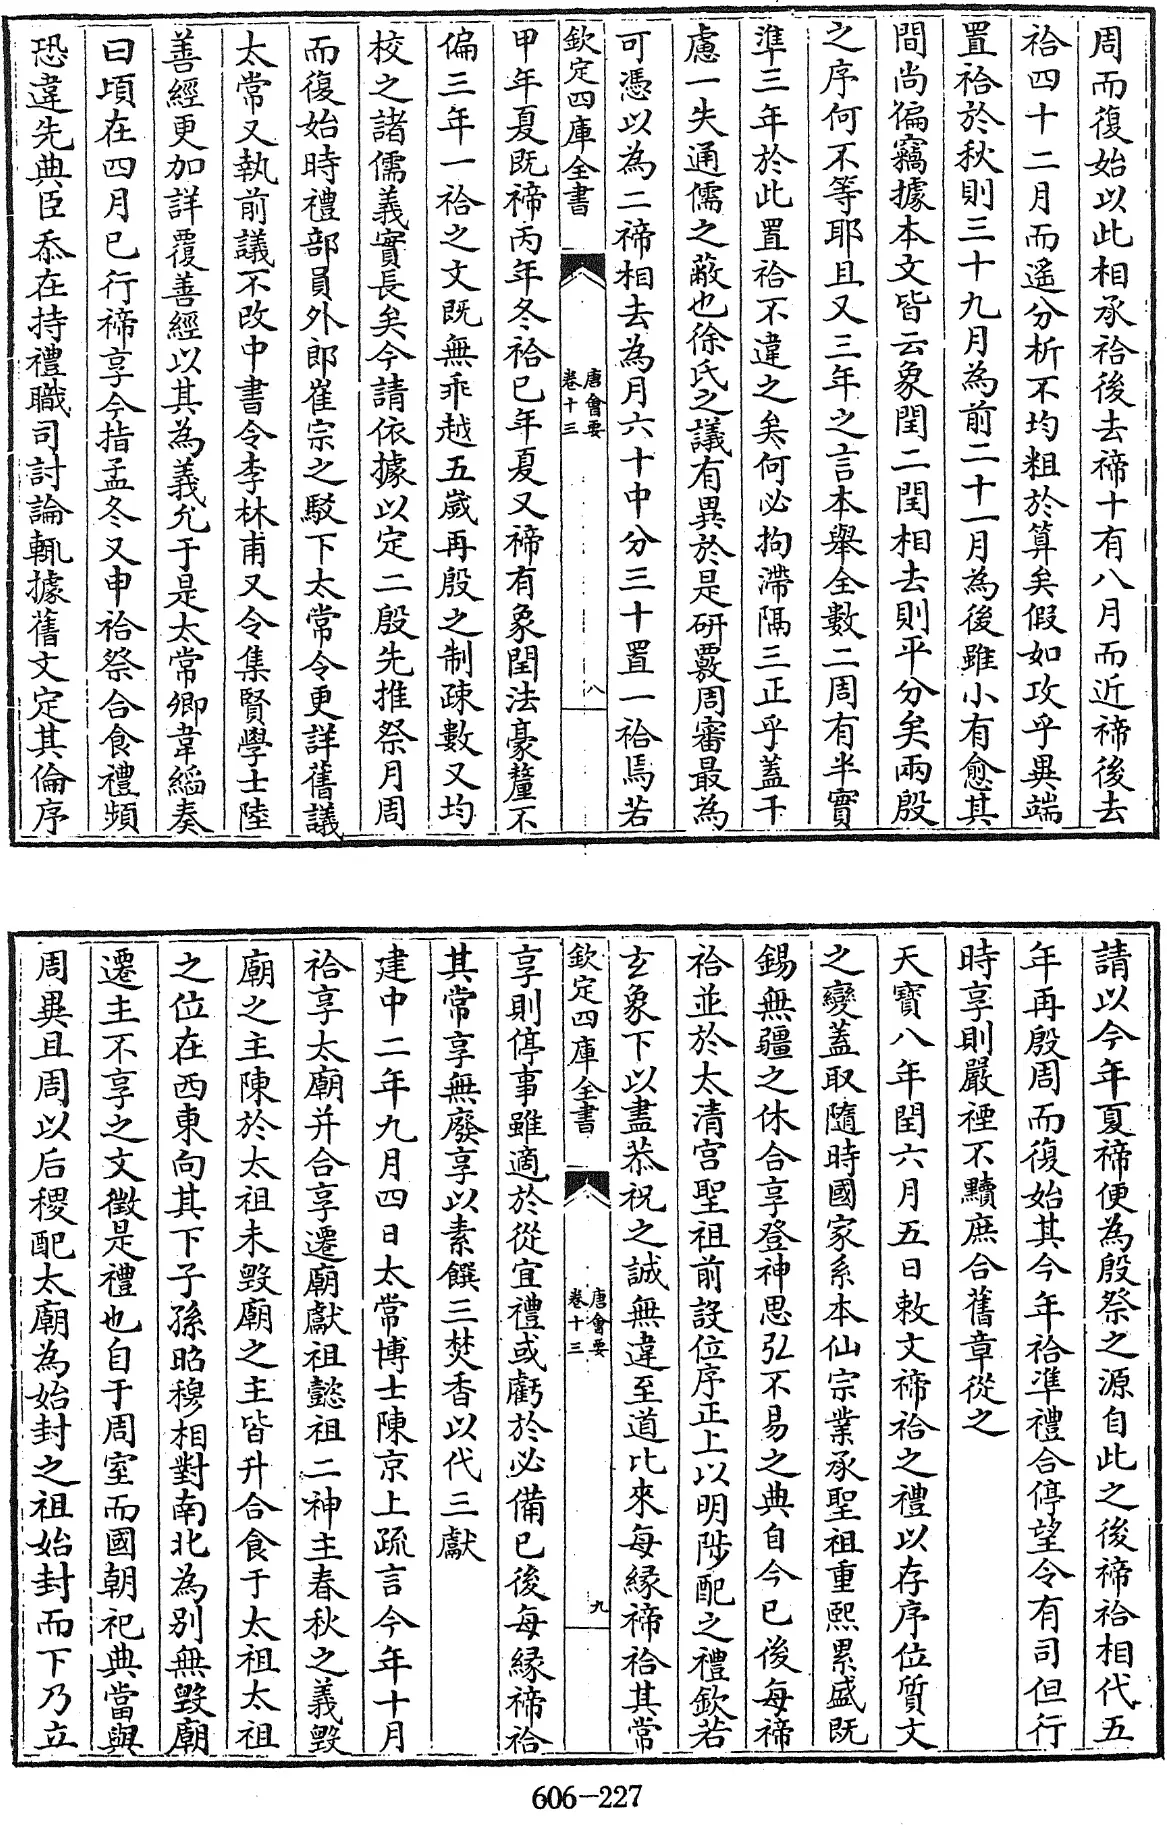 周而復始以此相承祫後去禘十有八月而近禘後去
祫四十二月而遙分析不均粗於算矣假如攻乎異端
置祫於秋則三十九月為前二十一月為後雖小有愈其
間尚偏竊據本文皆云象閏二閏相去則平分矣兩殷
之序何不等耶且又三年之言本舉全數二周有半實
準三年於此置祫不違之矣何必拘滯隔三正乎蓋千
慮一失通儒之蔽也徐氏之議有異於是研覈周審最為
可憑以為二禘相去為月六十中分三十置一祫焉若
欽定四庫全書
唐會要
卷十三
八
甲年夏既禘丙年冬祫已年夏又禘有象閏法豪釐不
偏三年一祫之文既無乖越五歲再殷之制疎數又均
校之諸儒義實長矣今請依據以定二殷先推祭月周
而復始時禮部員外郎崔宗之駮下太常令更詳舊議
太常又執前議不改中書令李林甫又令集賢學士陸
善經更加詳覆善經以其為義允于是太常卿韋縚奏
曰頃在四月已行禘享今指孟冬又申祫祭合食禮頻
恐違先典臣忝在持禮職司討論輒據舊文定其倫序
請以今年夏禘便為殷祭之源自此之後禘祫相代五
年再殷周而復始其今年祫準禮合停望令有司但行
時享則嚴禋不黷庶合舊章從之
天寶八年閏六月五日敕文禘祫之禮以存序位質文
之變蓋取隨時國家系本仙宗業承聖祖重熙累盛既
錫無疆之休合享登神思弘不易之典自今已後每禘
祫並於太清宮聖祖前設位序正上以明陟配之禮欽若
玄象下以盡恭祝之誠無違至道比來每緣禘祫其常
欽定四庫全書
唐會要
卷十三
九
享則停事雖適於從宜禮或虧於必備已後每緣禘祫
其常享無廢享以素饌三焚香以代三獻
建中二年九月四日太常博士陳京上疏言今年十月
祫享太廟并合享遷廟獻祖懿祖二神主春秋之義毀
廟之主陳於太祖未毀廟之主皆升合食于太祖太祖
之位在西東向其下子孫昭穆相對南北為別無毀廟
遷主不享之文徵是禮也自于周室而國朝祀典當與
周異且周以后稷配太廟為始封之祖始封而下乃立
606-227